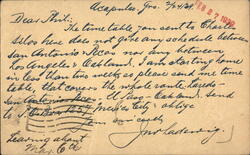 Acapulco, Gro. 2/24/21.
Dear Phil: The time table you sent to Chas.
Silas here does not give any schedule between
San Antonio & Paso nor any between
Los Angeles & Oakland. I am starting home
in less than two weeks so please send me time
table, that covers the whole route, Laredo-
San Antonio
El Paso - Oakland, send
to
Mexico City & oblige
Yours very truly
Leaving about
Mar. 6th